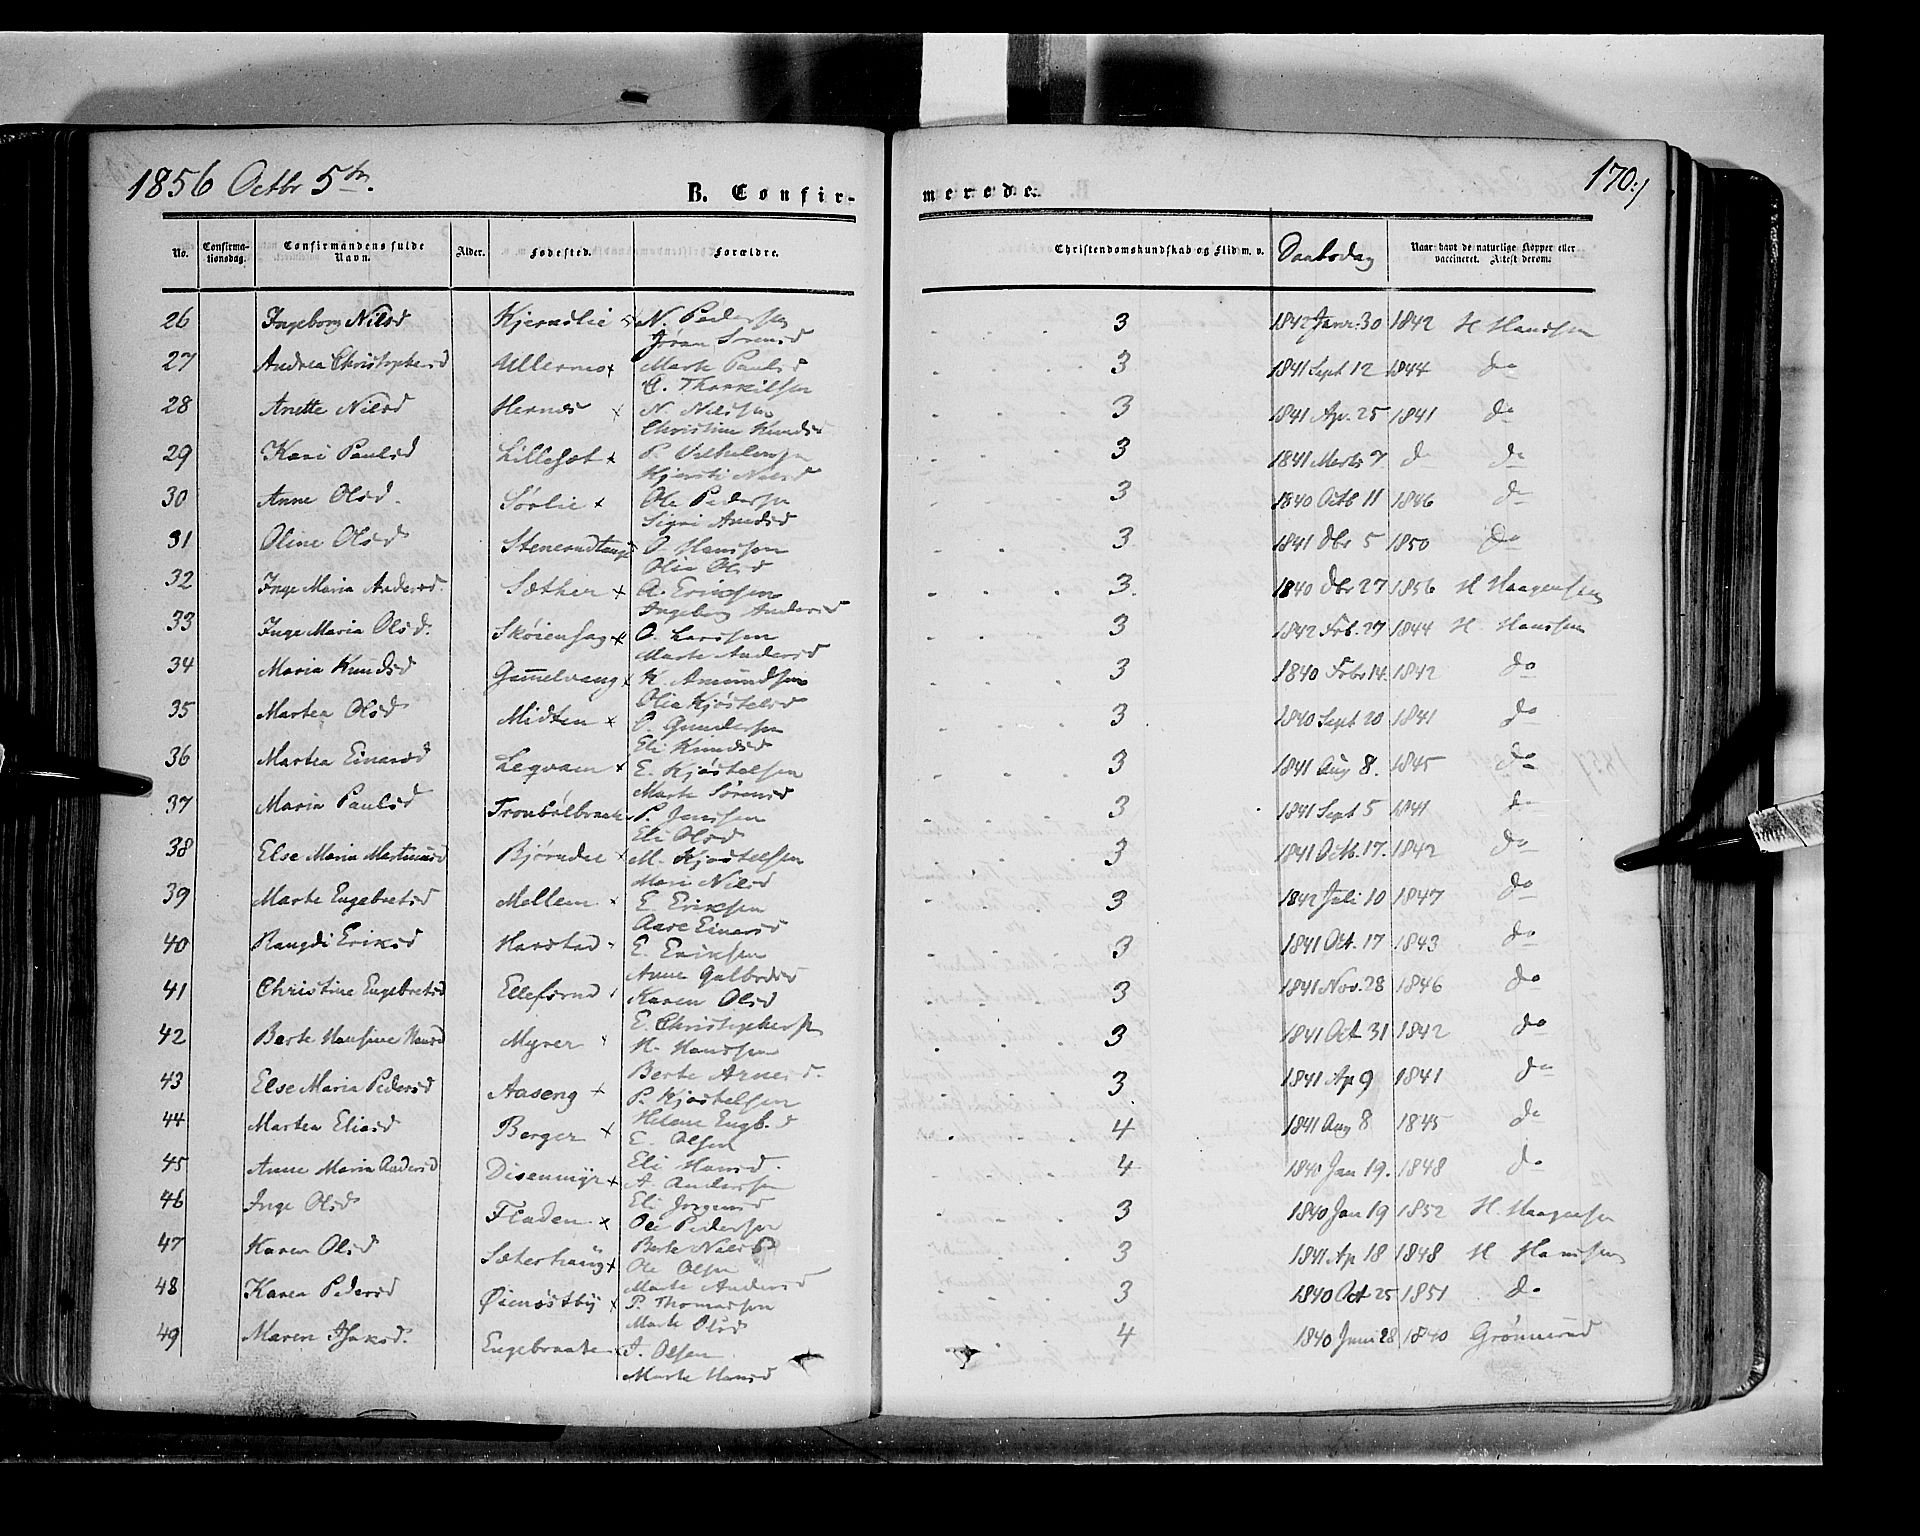 1856 Octbr 5te.
B. Confir-
merede.
170.
No. Confirma-tionsdag. Confirmandens fulde Navn. Alder. Fødested. Forældre. Christendomskundskab og Flid m. v. Daabsdag Naar havt de naturlige Kopper eller vaccineret. Attest derom.
26 Ingeborg Nilsd Kjernslie N. Pedersen 3 1842 Janr. 30 1842 H Hanssen
Jøran Sørensd
27 Andrea Christophersd Ullernes x Marte Paulsd 3 1841 Sept 12 1844 do
C. Thorkilsen
28 Anette Nilsd Hernes x N. Nilssen 3 1841 Apr. 25 1841 do
Christine Knudsd
29 Kari Paulsd Lillesæt x P. Vilhelmsen 3 1841 Marts 7 do do
Kjersti Nilsd
30 Anne Olsd. Sørlie x Ole Pedersen 3 1840 Octb 11 1846 do
Sigri Amdsd
31 Oline Olsd Stenerudtangen O. Hanssen 3 1841 Dbr 5 1850 do
Olia Olsd
32 Inge Maria Andersd. Sæther x A. Eriksen 3. 1840 Dbr 27 1856 H Haagensen
Ingeborg Andersd
33 Inge Maria Olsd. Skøiensag x O. Larssen 3 1842 Feb. 27 1844 H. Hanssen
Marte Andersd
34 Maria Knudsd Gammelvang x K. Amundsen 3 1840 Febr 14. 1842 do
Olia Kjøstelsd
35 Martea Olsd Midten x O. Gundersen 3 1840 Sept 20 1841 do
Eli Knudsd
36 Martea Einarsd Leqvam x E. Kjøstelsen 3 1841 Aug 8. 1845 do
Marte Sørensd
37 Maria Paulsd Tronbølbraaten P. Jenssen 3 1841 Sept 5 1841 do
Eli Olsd
38 Else Maria Martinusd Bjørndee x M. Kjøstelsen 3 1841 Octb. 17. 1842 do
Mari Nilsd
39 Marte Engebretsd Mellem x E. Eriksen 3 1842 Juli 10 1847 do
Aase Einarsd
40 Rangdi Eriksd Harstad E. Eriksen 3 1841 Oct. 17 1843 do
Anne Gulbrdsd
41 Christine Engebretsd Ellefsrud Karen Olsd 3 1841 Nov. 28 1846 do
E. Christophersen
42 Berte Hansine Hansd Myrer x H. Hanssen 3 1841 Oct 31 1842 do
Berte Arnesd.
43 Else Maria Pedersd Aaseng x P. Kjøstelsen 3. 1841 Ap 9 1841 do
Helene Engb.d
44 Martea Eliasd Berger x E. Olsen 4 1841 Aug 8 1845 do
Eli Hansd.
45 Anne Maria Andersd Disenmyr x A. Anderssen 4 1840 Jan 19. 1848 do
Eli Jørgensd
46 Inge Olsd Fladen x Ole Pedersen 3 1840 Jan 19 1852 H. Haagensen
Berte Nilsd
47 Karen Olsd Sæterhaug x Ole Olsen 3 1841 Ap 18 1848 H Hanssen
Marte Andersd
48 Karen Pedersd Øienøstby x P. Thomassen 3 1840 Oct 25 1851 do
Marte Olsd
49 Maren Isaksd. Engebraaten x I. Olsen 4 1840 Juni 28 1840 Grønnerud
Marte Hansd